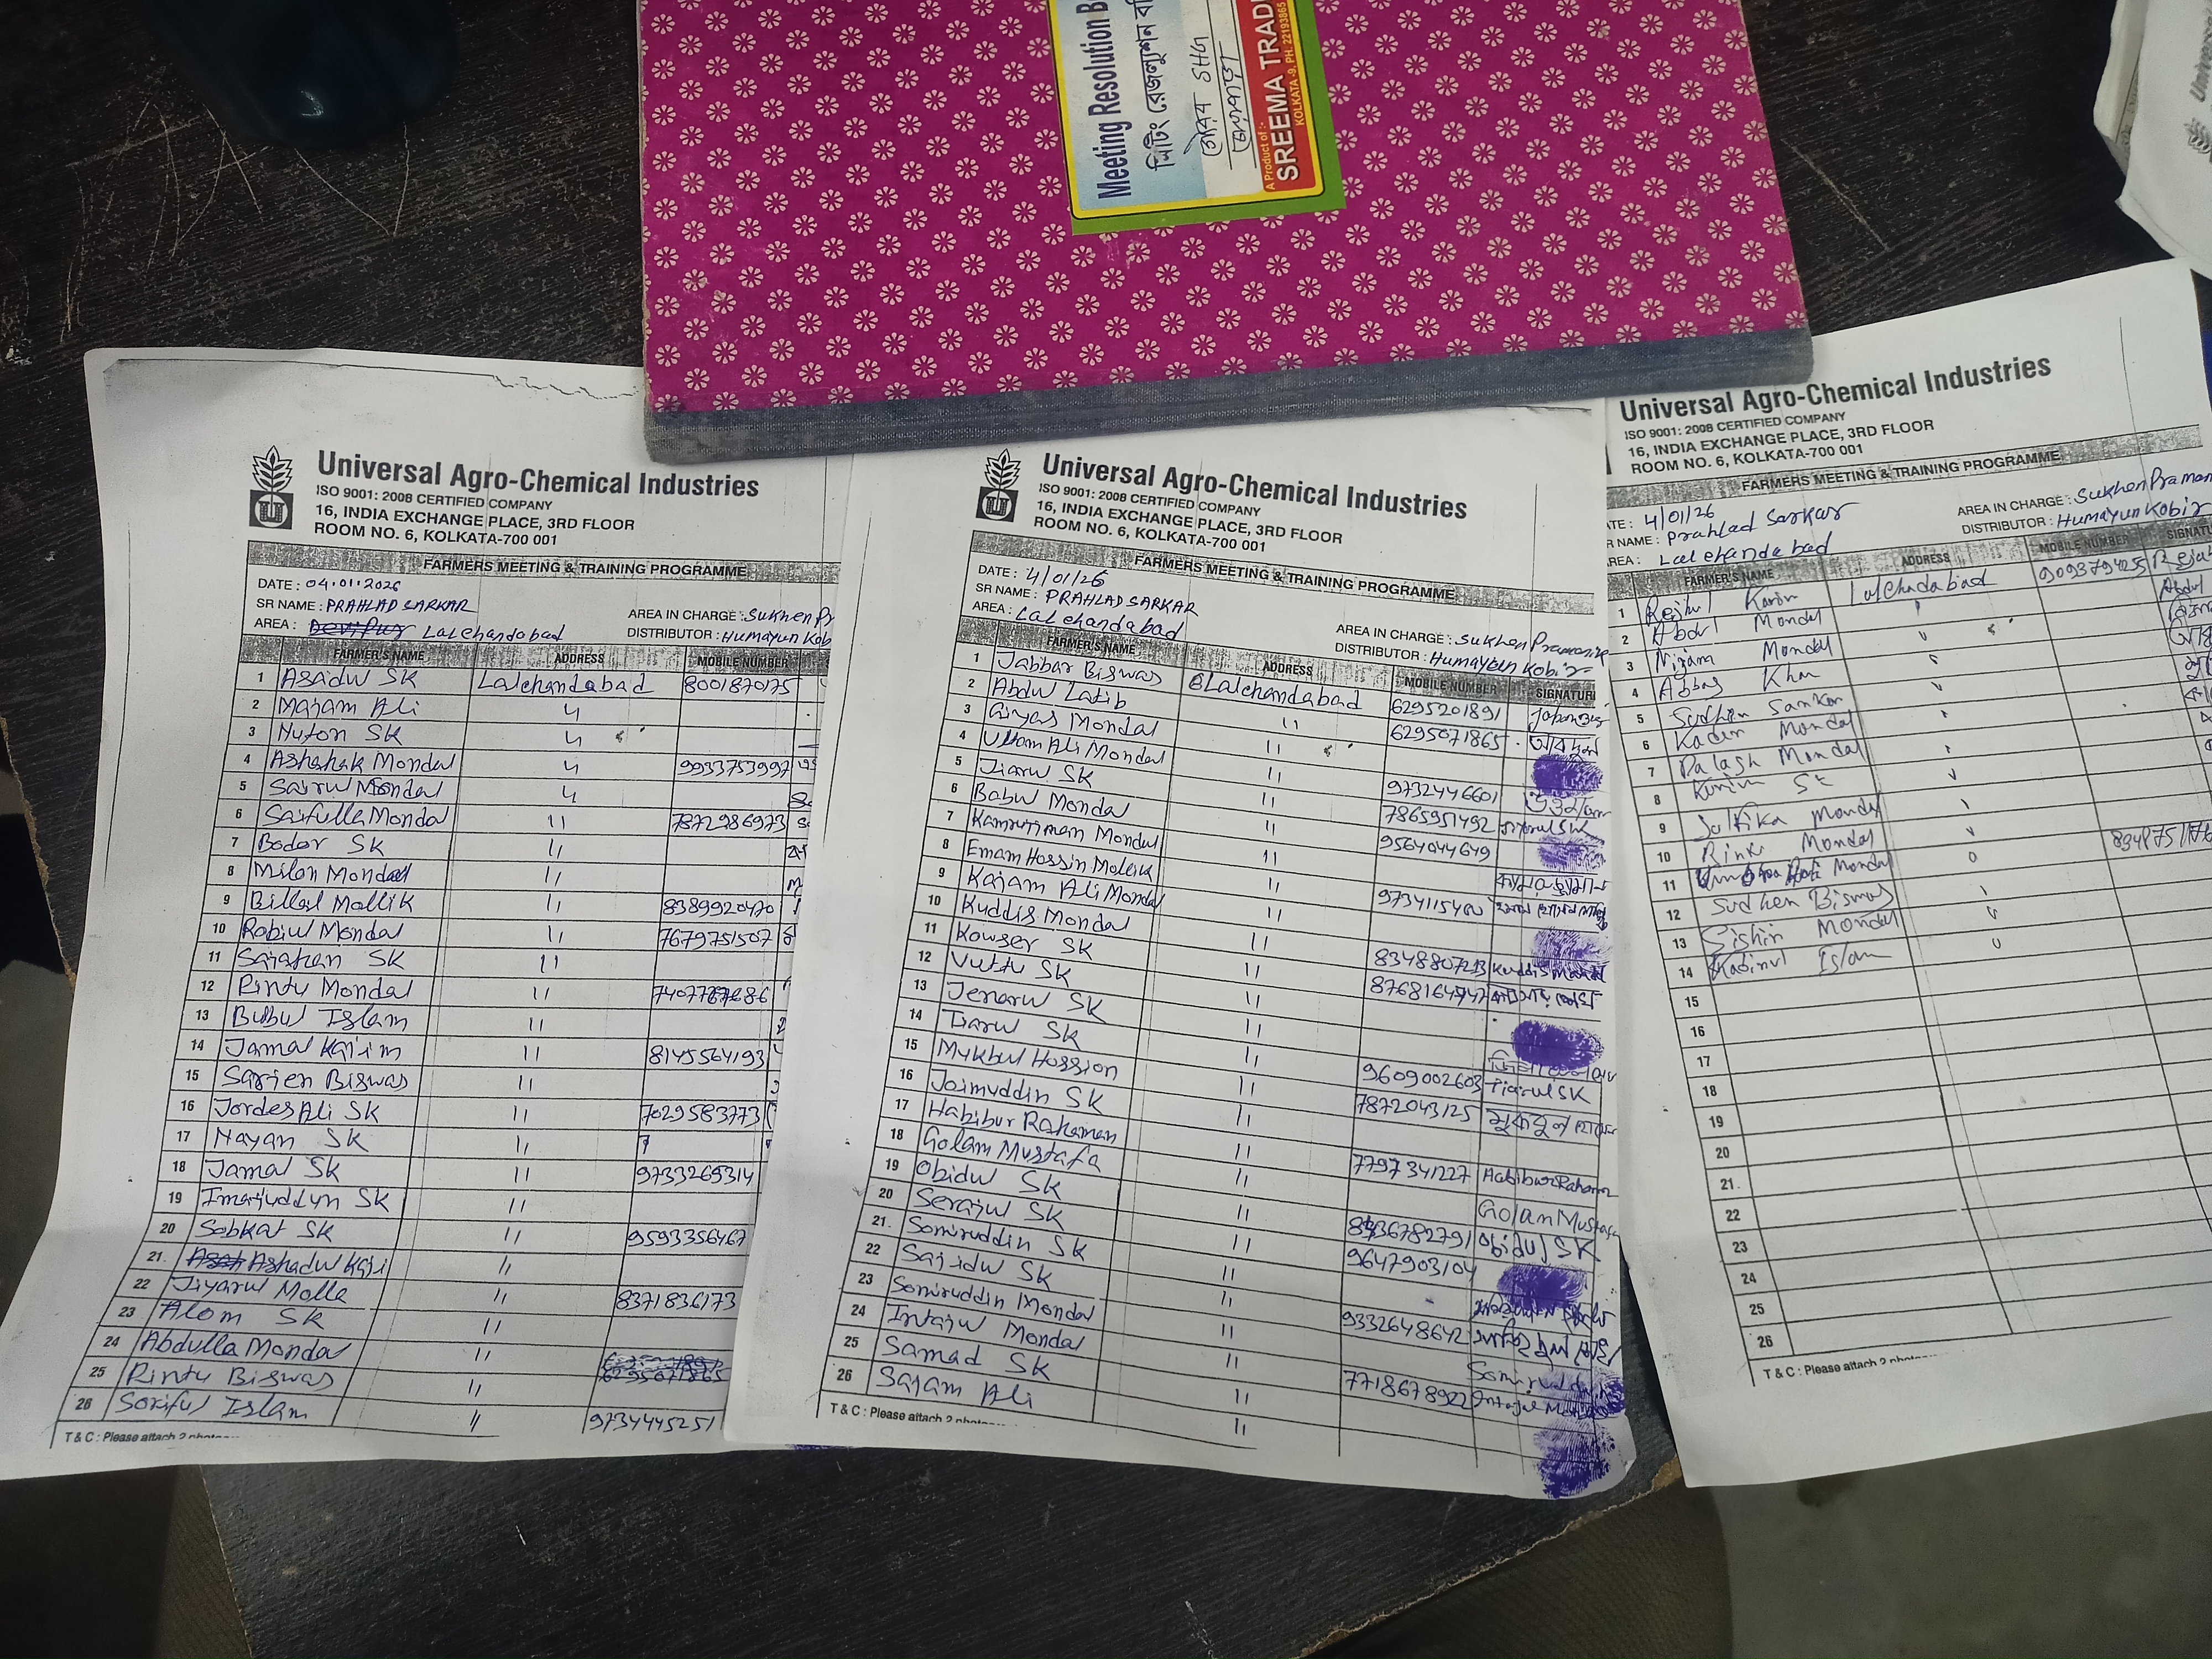 Meeting Resolution B
মিটিং রেজল্যুশন বহি
SHG
A Product of :-
SREEMA TRADI
KOLKATA-9, PH. 22193865
Universal Agro-Chemical Industries
ISO 9001: 2008 CERTIFIED COMPANY
16, INDIA EXCHANGE PLACE, 3RD FLOOR
ROOM NO. 6, KOLKATA-700 001
FARMERS MEETING & TRAINING PROGRAMME
DATE : 04.01.2026
SR NAME : PRAHLAD SARKAR
AREA IN CHARGE : Sukhen Pr
AREA : Lalchandabad
DISTRIBUTOR : Humayun Kob
FARMER'S NAME ADDRESS MOBILE NUMBER
1 Asadul SK Lalchandabad 8001870175
2 Majam Ali 〃
3 Nuton SK 〃
4 Ashahak Mondal 〃 9933753997
5 Sairul Mondal 〃
6 Saifulla Mondal 〃 7872986973
7 Bador SK 〃
8 Milan Mondal 〃
9 Billal Mollik 〃 8389920470
10 Robiul Mondal 〃 7679751507
11 Sajahan SK 〃
12 Rintu Mondal 〃
13 Bubul Islam 〃
14 Jamal Kajim 〃 8145564193
15 Sarjen Biswas 〃
16 Jordes Ali SK 〃 7029583773
17 Nayan SK 〃
18 Jamal SK 〃 9733265314
19 Imajuddyn SK 〃
20 Sobkat SK 〃 9593356467
21. Ashadul Kaji 〃
22 Jiyarul Molla 〃 8371836173
23 Alom SK 〃
24 Abdulla Mondal 〃
25 Rintu Biswas 〃
26 Soriful Islam 〃 9734445251
T & C : Please attach 2
Universal Agro-Chemical Industries
ISO 9001: 2008 CERTIFIED COMPANY
16, INDIA EXCHANGE PLACE, 3RD FLOOR
ROOM NO. 6, KOLKATA-700 001
FARMERS MEETING & TRAINING PROGRAMME
DATE : 4/01/26
SR NAME : PRAHLAD SARKAR
AREA IN CHARGE : Sukhen Pramanik
AREA : Lalchandabad
DISTRIBUTOR : Humayun Kobir
FARMER'S NAME ADDRESS MOBILE NUMBER SIGNATUR
1 Jabbar Biswas Lalchandabad 6295201891
2 Abdul Latib 〃 6295071865
3 Giyas Mondal 〃
4 Uttam Ali Mondal 〃 9732446601
5 Jiarul SK 〃 7865951492
6 Babul Mondal 〃 9564044649
7 Kamrujiman Mondal 〃
8 Emam Hossin Mollik 〃
9 Kajam Ali Mondal 〃
10 Kuddis Mondal 〃 8348807213 Kuddis Mondal
11 Kowser SK 〃
12 Vuttu SK 〃
13 Jenarul SK 〃
14 Tiarul SK 〃 9609002603 Tiarul SK
15 Mukbul Hossion 〃 7872043125
16 Joimuddin SK 〃
17 Habibur Rahaman 〃 7797341227 Habibur Rahaman
18 Golam Mustafa 〃 Golam Mustafa
19 Obidul SK 〃 Obidul SK
20 Serajul SK 〃 9647903104
21. Somiruddin SK 〃
22 Sajidul SK 〃 9332648642
23 Somiruddin Mondal 〃
24 Intajul Mondal 〃 7718678922
25 Samad SK 〃
26 Sajam Ali 〃
T & C : Please attach 2
Universal Agro-Chemical Industries
ISO 9001: 2008 CERTIFIED COMPANY
16, INDIA EXCHANGE PLACE, 3RD FLOOR
ROOM NO. 6, KOLKATA-700 001
FARMERS MEETING & TRAINING PROGRAMME
ATE : 4/01/26
AREA IN CHARGE : Sukhen Praman
R NAME : Prahlad Sarkar
DISTRIBUTOR : Humayun Kobir
AREA : Lalchandabad
FARMER'S NAME ADDRESS MOBILE NUMBER SIGNATU
1 Rejaul Karim Lalchandabad 9093794255
2 Abdul Mondal
3 Nijam Mondal
4 Abbas Khan
5 Sudhin Sarkar
6 Kader Mondal
7 Palash Mondal
8 Karim SK
9 Mondal
10 Rinki Mondal
11 Mondal
12 Sudhen Biswas
13 Mondal
14 Kabirul Islam
15
16
17
18
19
20
21.
22
23
24
25
26
T & C : Please attach 2